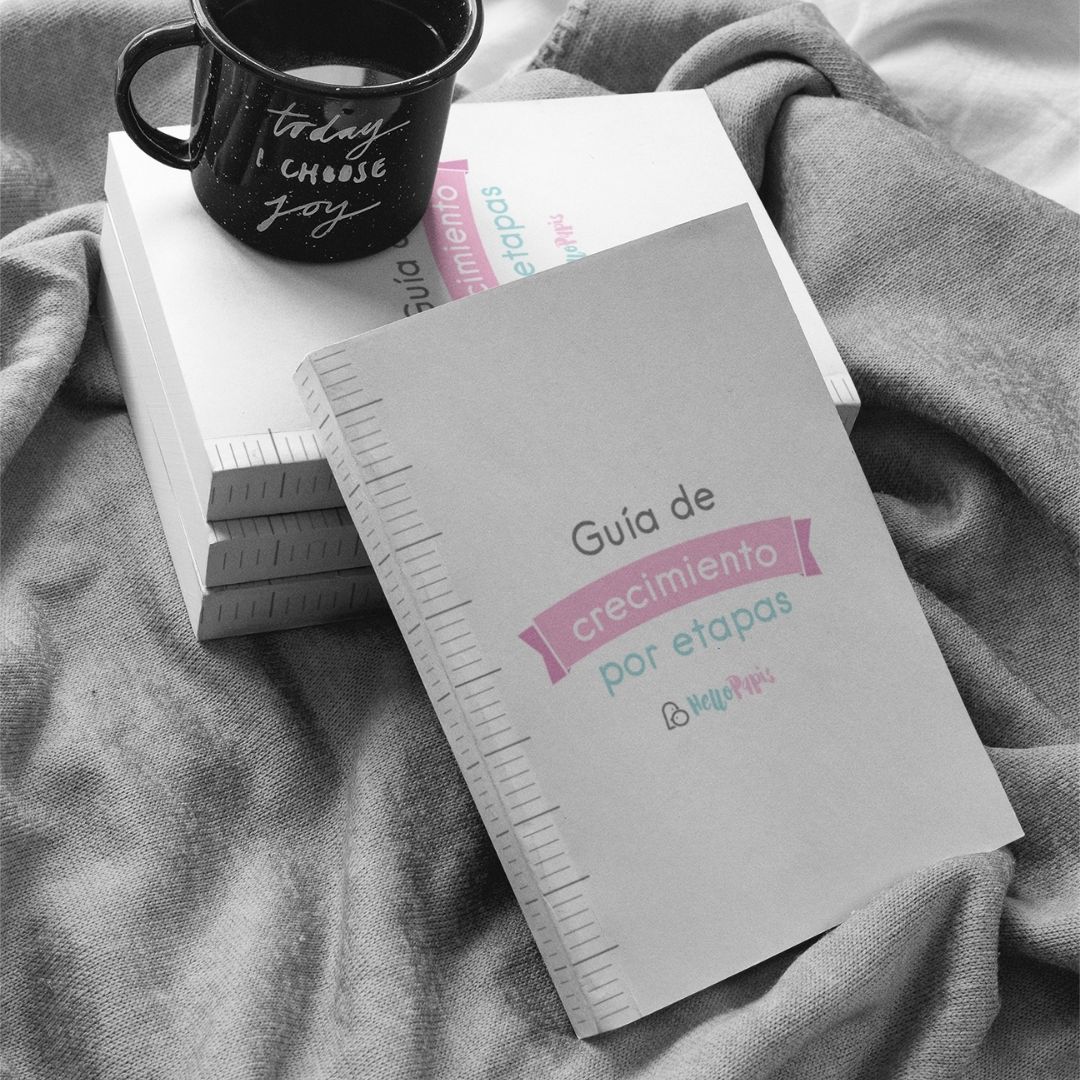 today
I CHOOSE
joy
Guía
cimiento
etapas
Papis
Guía de
crecimiento
por etapas
HelloPapis